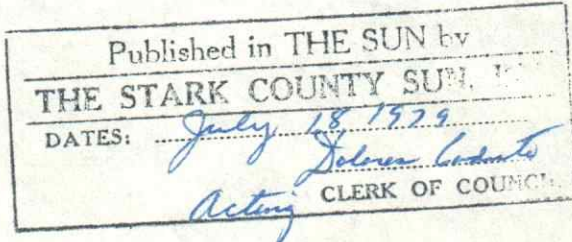 Published in THE SUN by
THE STARK COUNTY SUN,
DATES: July 18 1979
Dolores
Acting CLERK OF COUNCIL